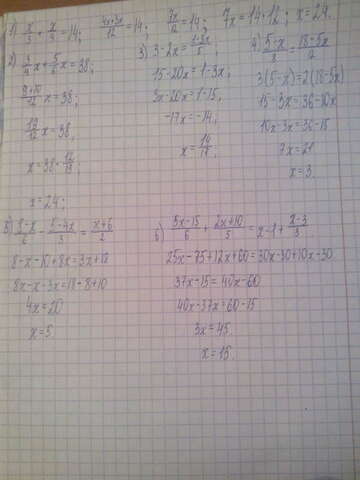 1) x/3 + x/4 = 14; (4x+3x)/12 = 14; 7x/12 = 14; 7x = 14·12; x = 24.
2) 3/4 x + 5/6 x = 38;
(9+10)/12 x = 38;
19/12 x = 38,
x = 38 · 12/19;
x = 24;
3) 3-2x = (1-3x)/5;
15-20x = 1-3x;
3x-20x = 1-15,
-17x = -14;
x = 14/17.
4) (5-x)/8 = (18-5x)/12
3(5-x) = 2(18-5x)
15-3x = 36-10x
10x-3x = 36-15
7x = 21
x = 3.
5) (8-x)/6 - (5-4x)/3 = (x+6)/2
8-x-10+8x = 3x+18
8x-x-3x = 18-8+10
4x = 20
x = 5.
6) (5x-15)/6 + (2x+10)/5 = x-1 + (x-3)/3
25x-75+12x+60 = 30x-30+10x-30
37x-15 = 40x-60
40x-37x = 60-15
3x = 45
x = 15.